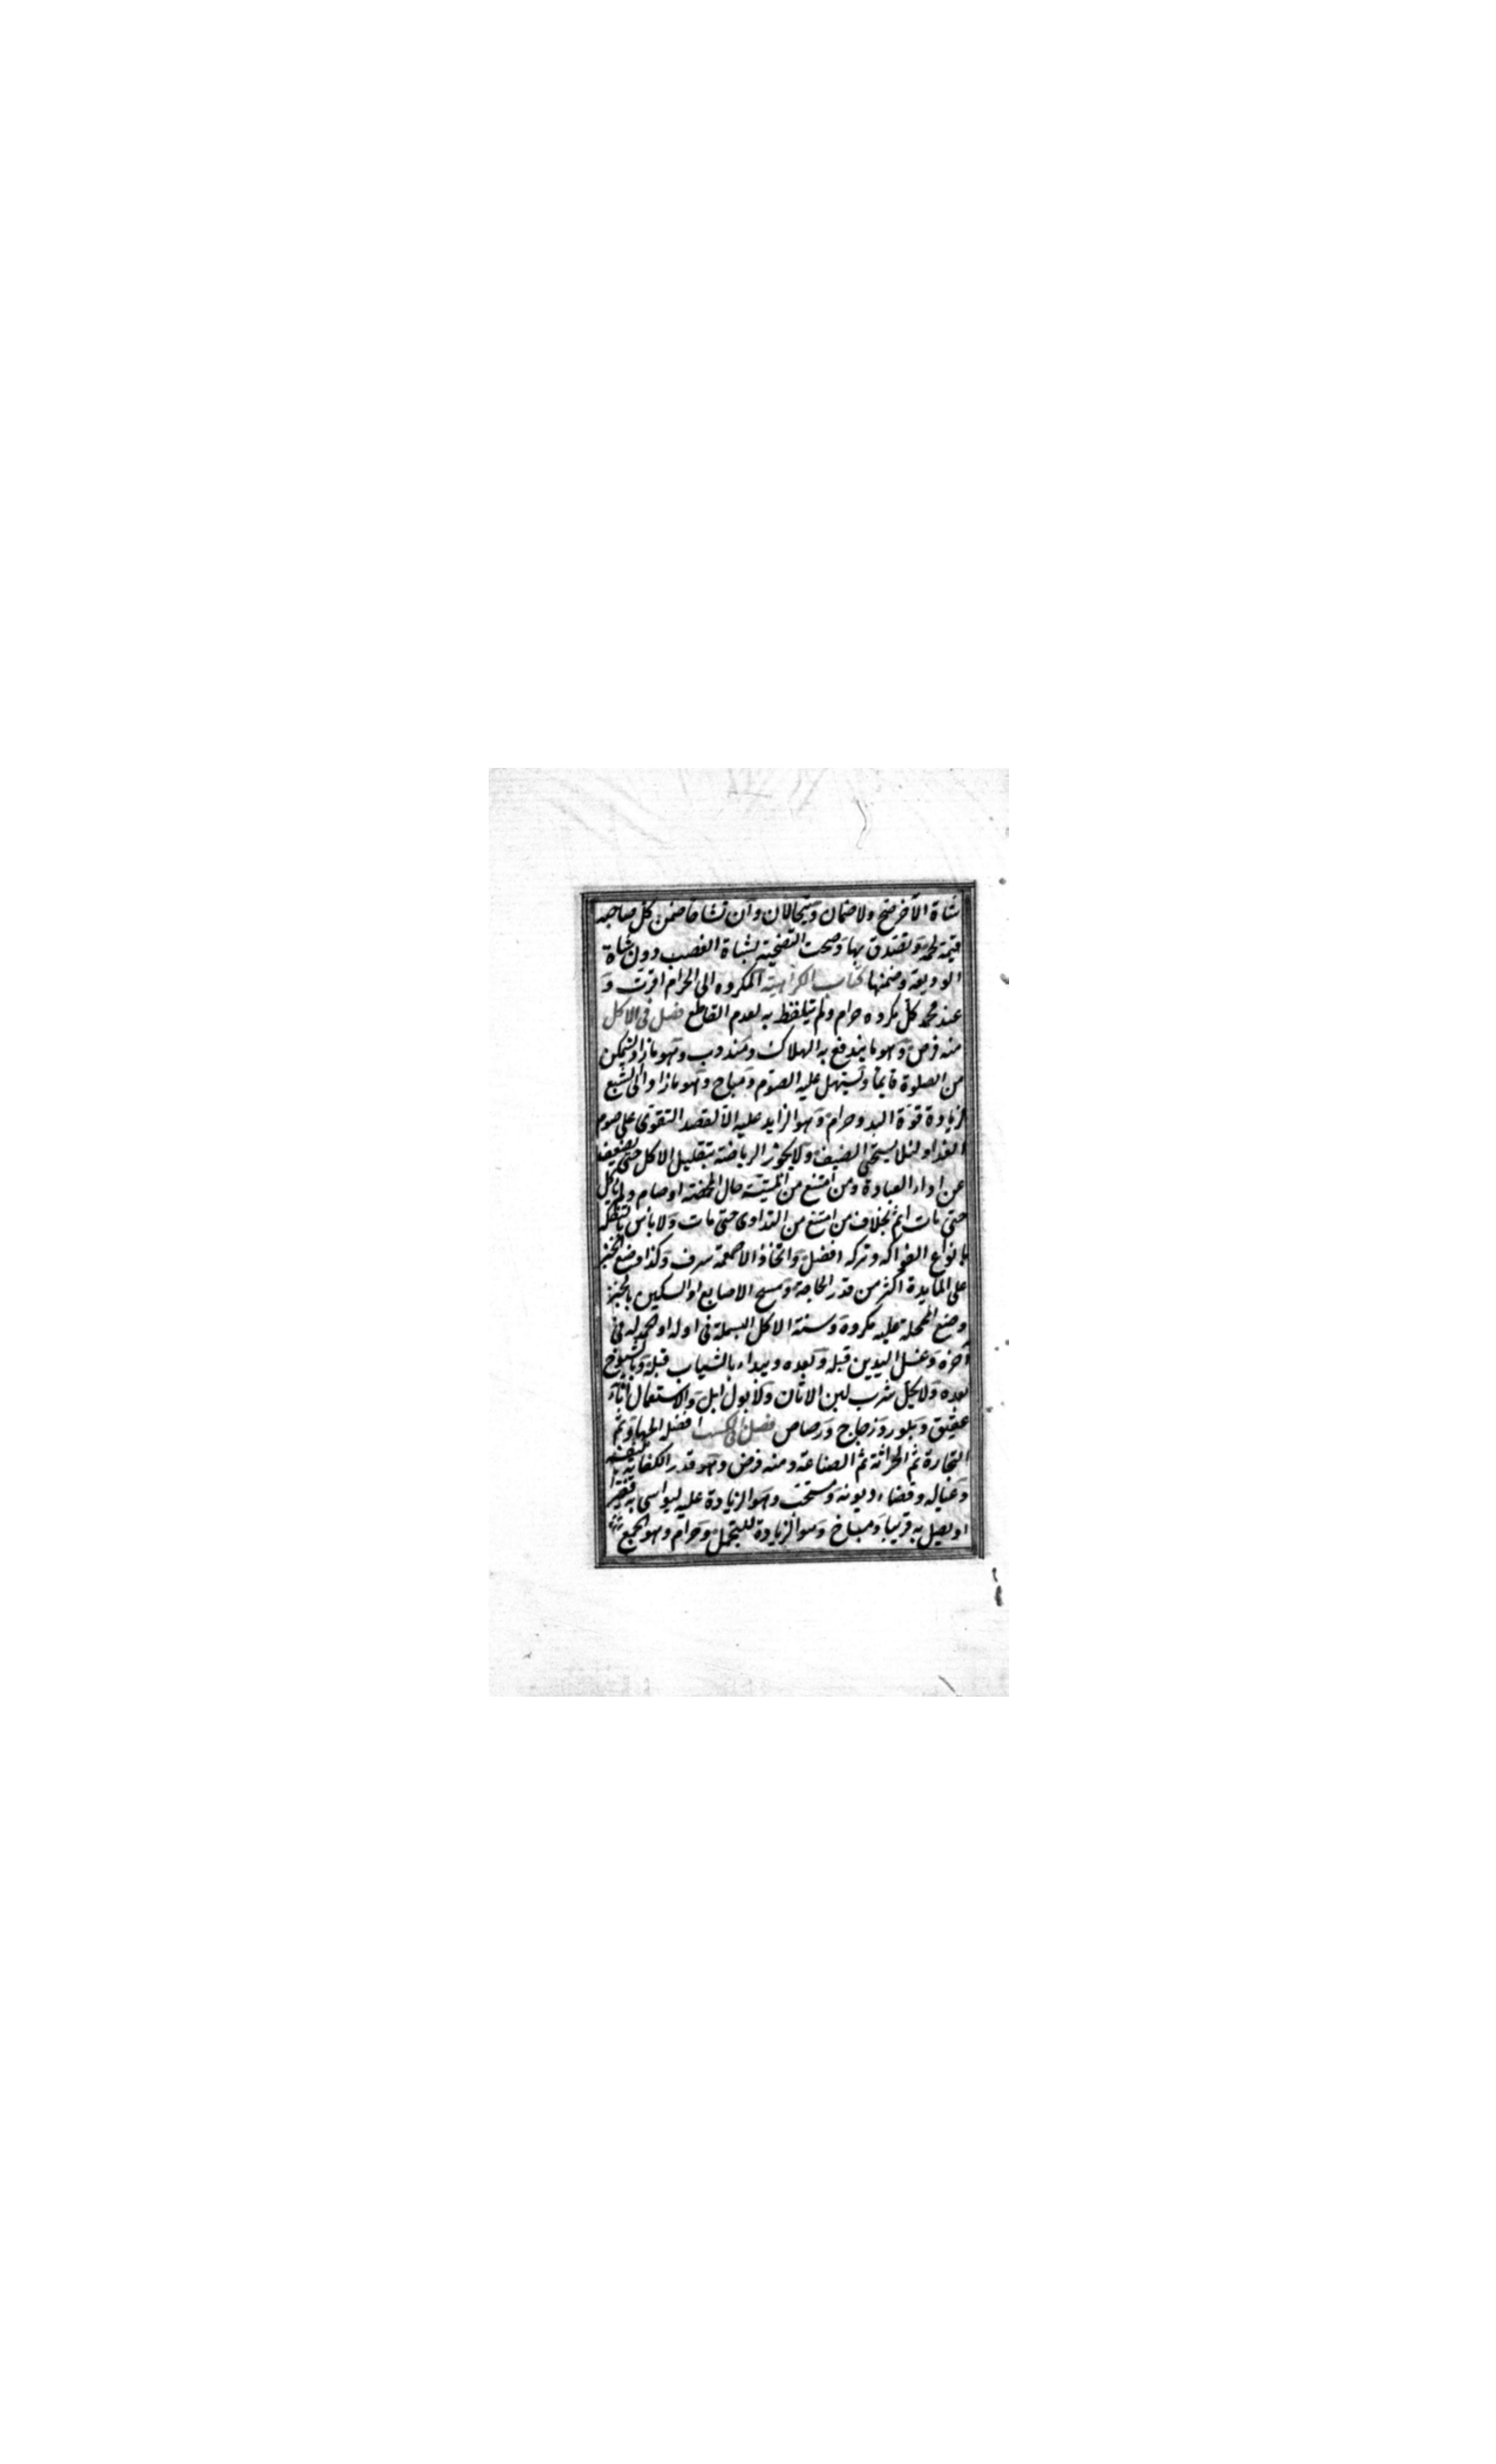 شاة الآخر صح ولا ضمان ويتحالان وان تشاحا ضمن كل صاحبه
قيمة لحمه وتصدق بها وصحت التضحية بشاة الغصب دون شاة
الوديعة وضمنها كتاب الكراهية المكروه الى الحرام اقرب و
عند محمد كل مكروه حرام ولم يتلفظ به لعدم القاطع فصل فى الاكل
منه فرض وهو ما يندفع به الهلاك ومندوب وهو ما زاد ليتمكن
من الصلوة قايما ويسهل عليه الصوم ومباح وهو ما زاد الى الشبع
لزيادة قوة البدن وحرام وهو الزايد عليه الا لقصد التقوى على صوم
الغد او لئلا يستحى الضيف ولا يجوز الرياضة بتقليل الاكل حتى يضعف
عن اداء العبادة ومن امتنع من الميتة حال المخمصة او صام ولم ياكل
حتى مات اثم بخلاف من امتنع من التداوى حتى مات ولا بأس بالتفكه
بانواع الفواكه وتركه افضل واتخاذ الاطعمة سرف وكذا وضع الخبز
على المايدة اكثر من قدر الحاجة ومسح الاصابع او السكين بالخبز
ووضع المملحة عليه مكروه وسنة الاكل البسملة فى اوله والحمدله فى
آخره وغسل اليدين قبله وبعده ويبداء بالشباب قبله وبالشيوخ
بعده ولا يحل شرب لبن الاتان ولا بول ابل والاستعمال اناء
عقيق وبلور وزجاج ورصاص فصل فى الكسب افضله الجهاد ثم
التجارة ثم الحراثة ثم الصناعة ومنه فرض وهو قدر الكفاية لنفسه
وعياله وقضاء ديونه ومستحب وهو الزيادة عليه ليواسى به فقيرا
او يصل به قريبا ومباح وهو الزيادة للتجمل وحرام وهو الجمع